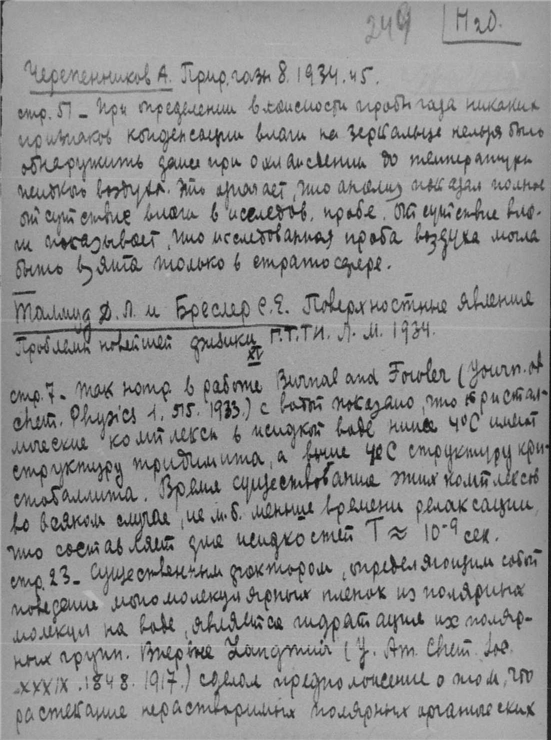 249 H₂O.
Черепенников А. Прир. газы 8. 1934. 45.
стр. 51 – При определении влажности пробы газа никаких
признаков конденсации влаги на зеркальце нельзя было
обнаружить даже при охлаждении до температуры
жидкого воздуха. Это означает, что анализ показал полное
отсутствие влаги в исследов. пробе. Отсутствие вла-
ги показывает, что исследованная проба воздуха могла
быть взята только в стратосфере.
Талмуд Д. Л. и Бреслер С. Е. Поверхностные явления
Проблемы новейшей физики Г.Т.ТИ. Л. М. 1934.
XV
стр. 7 – Так напр. в работе Burnal and Fowler (Journ. of
chem. Physics 1. 515. 1933.) с водой показано, что кристал-
лические комплексы в жидкой воде ниже 4°C имеют
структуру тридимита, а выше 4°C структуру кри-
стобаллита. Время существования этих комплексов
во всяком случае, не м. б. меньше времени релаксации,
что составляет для жидкостей T ≈ 10⁻⁹ сек.
стр. 23 – Существенным фактором, определяющим собой
поведение мономолекулярных пленок из полярных
молекул на воде, является гидратация их поляр-
ных групп. Впервые Langmuir (J. Am. Chem. Soc.
XXXIX. 1848. 1917.) сделал предположение о том, что
растекание нерастворимых полярных органических